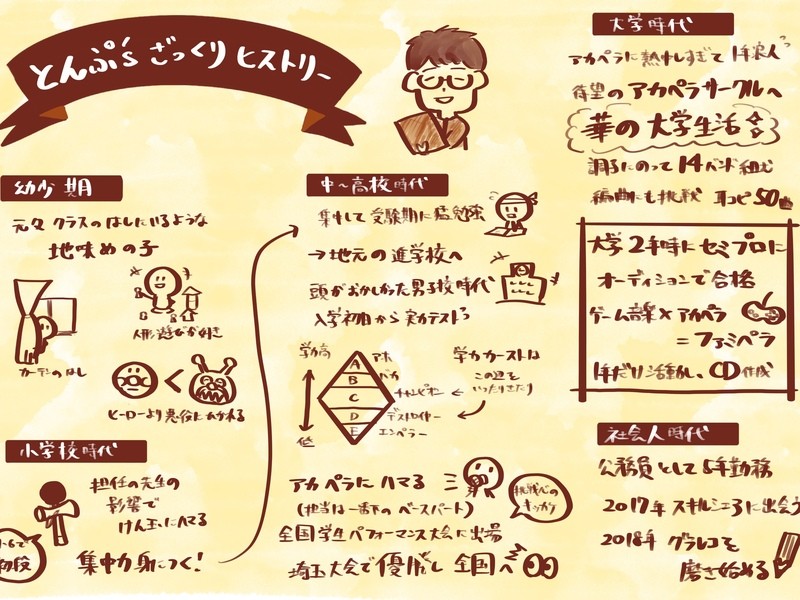 とんぷ'sざっくりヒストリー
幼少期
元々クラスのはしにいるような
地味めの子
カーテンのはし
人形遊びが好き
ヒーローより悪役にあこがれる
小学校時代
担任の先生の
影響で
けん玉にハマる
初段
集中力身につく!
中〜高校時代
集中して受験期に猛勉強
→地元の進学校へ
頭がおかしかった男子校時代
入学初日から実力テスト
学力高
低
A
B
C
D
E
アホ
バカ
チャンピオン
デストロイヤー
エンペラー
学力カーストは
この辺を
いったりきたり
アカペラにハマる
(担当は一番下のベースパート)
全国学生パフォーマンス大会に出場
埼玉大会で優勝し全国へ
挑戦心の
キッカケ
大学時代
アカペラに熱中しすぎて1年浪人
待望のアカペラサークルへ
華の大学生活
調子にのって14バンド組む
編曲にも挑戦 耳コピ50曲
大学2年時にセミプロに
オーディションで合格
ゲーム音楽×アカペラ
=ファミペラ
1年だけ活動し、CD作成
社会人時代
公務員として5年勤務
2017年 スキルシェアに出会う
2018年 グラレコを
磨き始める